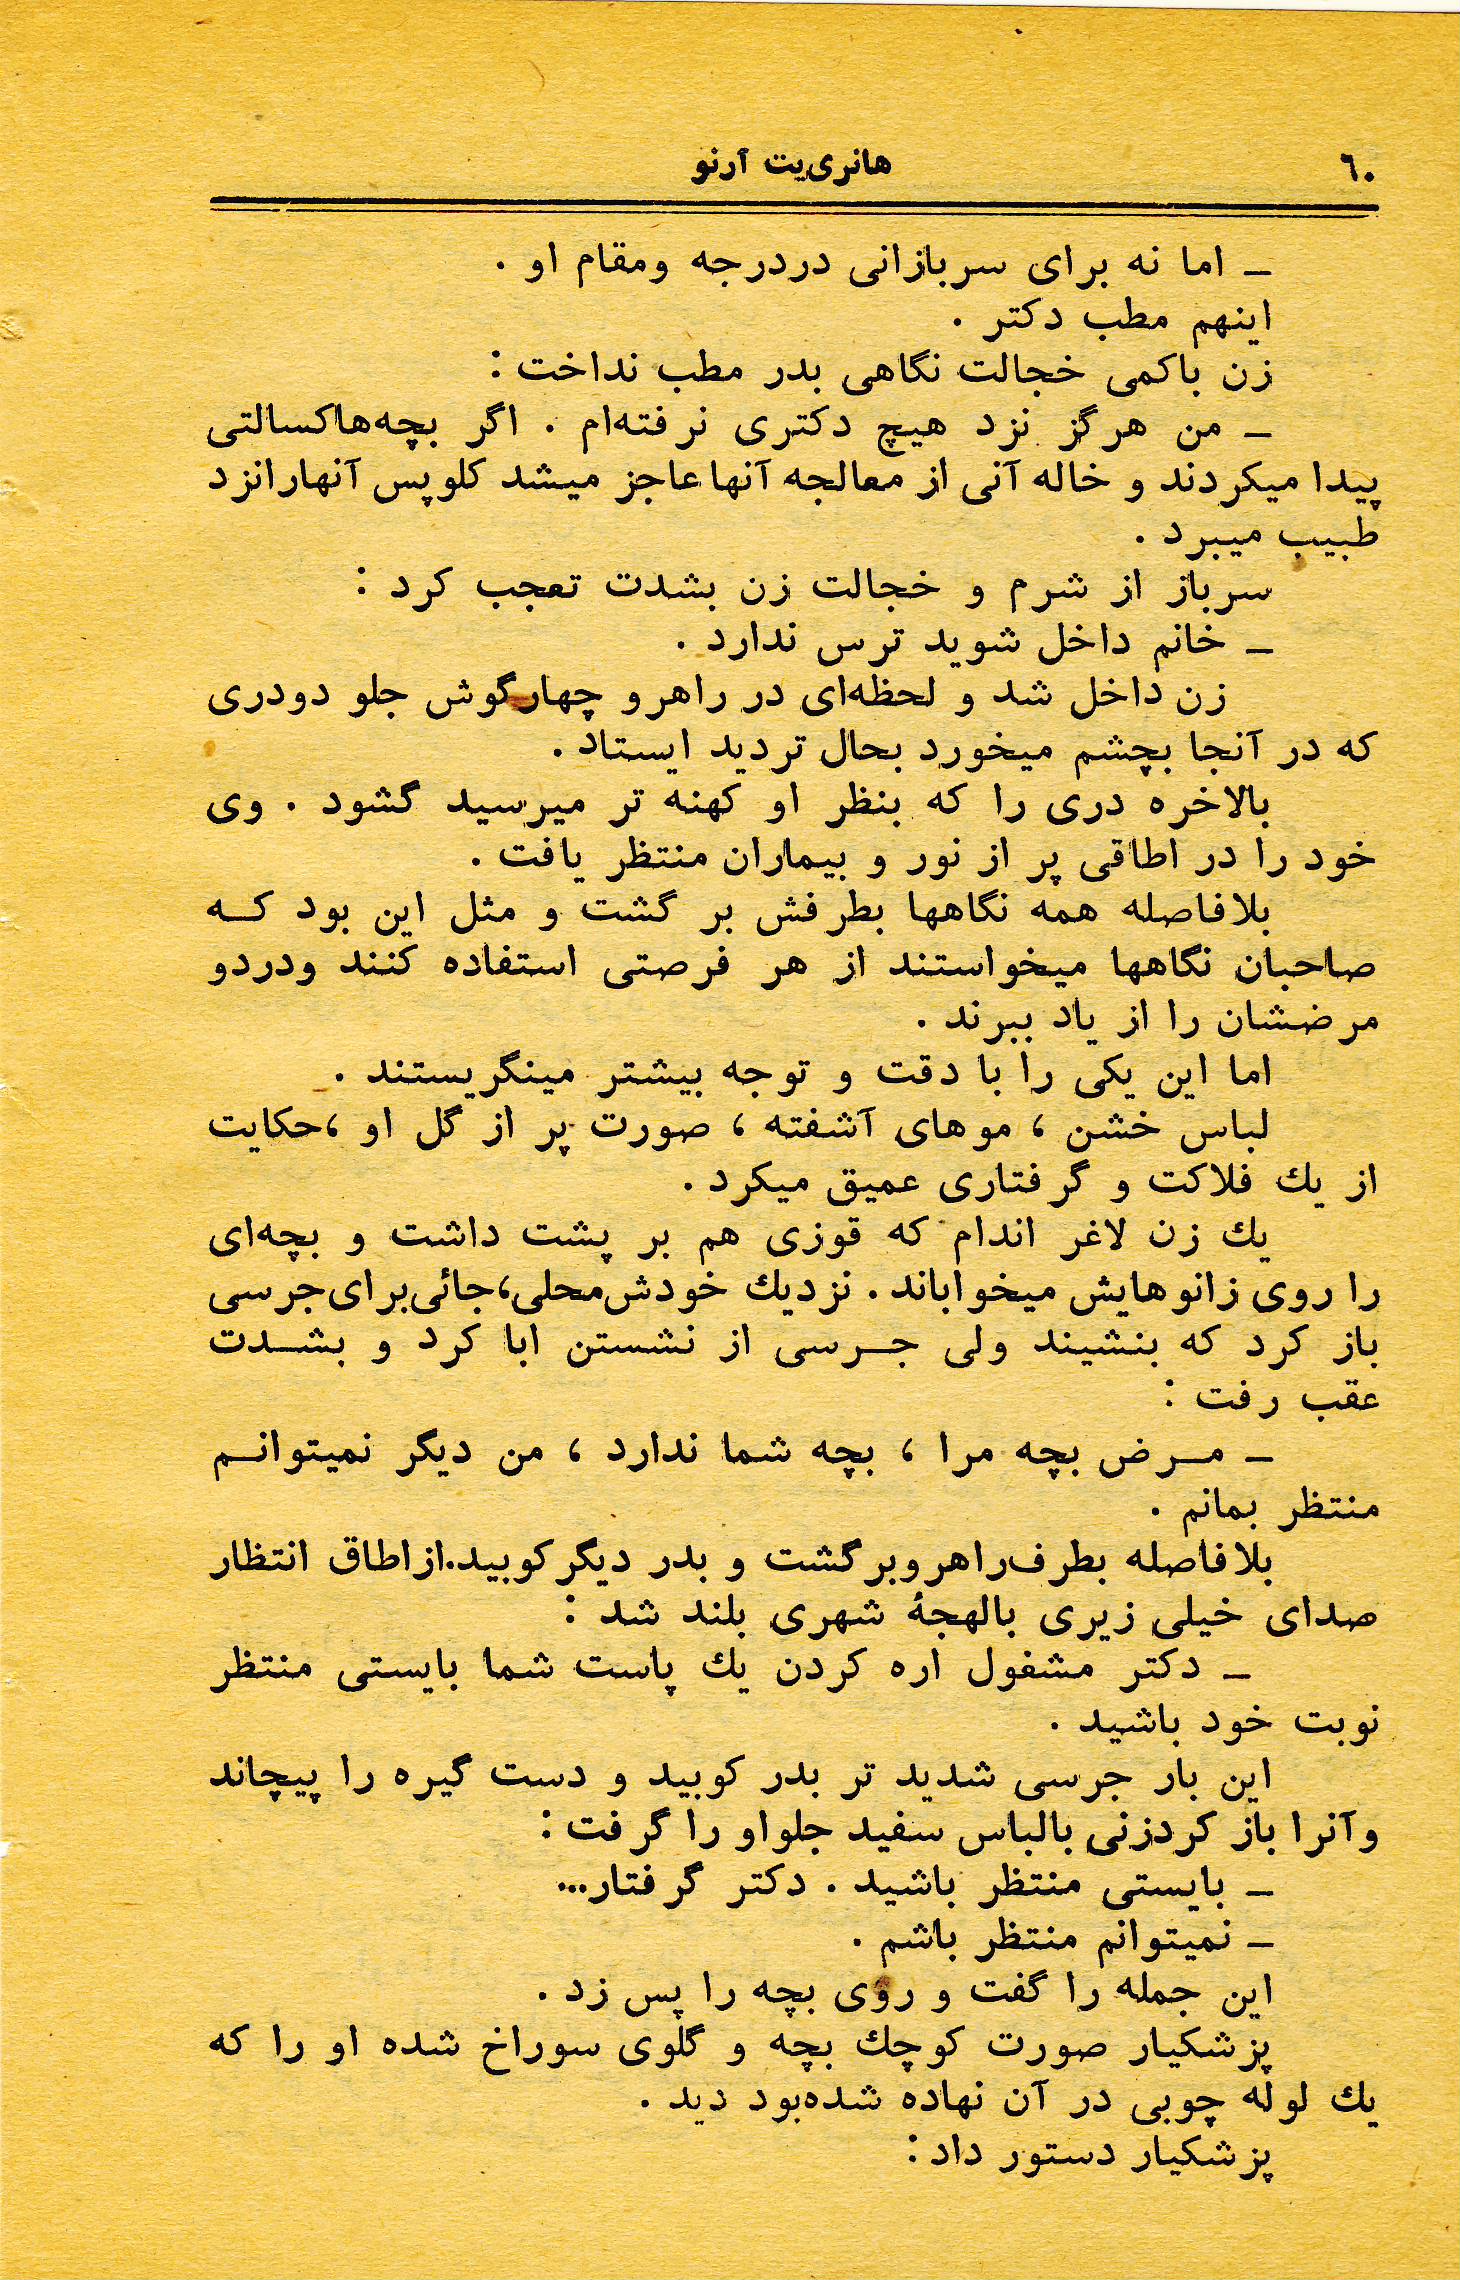 ٦٠
هانری‌یت آرنو
ـ اما نه برای سربازانی دردرجه ومقام او .
اینهم مطب دکتر .
زن باکمی خجالت نگاهی بدر مطب نداخت :
ـ من هرگز نزد هیچ دکتری نرفته‌ام . اگر بچه‌هاکسالتی
پیدا میکردند و خاله آنی از معالجه آنهاعاجز میشد کلوپس آنهارانزد
طبیب میبرد .
سرباز از شرم و خجالت زن بشدت تعجب کرد :
ـ خانم داخل شوید ترس ندارد .
زن داخل شد و لحظه‌ای در راهرو چهارگوش جلو دودری
که در آنجا بچشم میخورد بحال تردید ایستاد .
بالاخره دری را که بنظر او کهنه تر میرسید گشود . وی
خود را در اطاقی پر از نور و بیماران منتظر یافت .
بلافاصله همه نگاهها بطرفش بر گشت و مثل این بود کـه
صاحبان نگاهها میخواستند از هر فرصتی استفاده کنند ودردو
مرضشان را از یاد ببرند .
اما این یکی را با دقت و توجه بیشتر مینگریستند .
لباس خشن ، موهای آشفته ، صورت پر از گل او ،حکایت
از یك فلاکت و گرفتاری عمیق میکرد .
یك زن لاغر اندام که قوزی هم بر پشت داشت و بچه‌ای
را روی زانوهایش میخواباند . نزدیك خودش‌محلی،جائی‌برای‌جرسی
باز کرد که بنشیند ولی جـرسی از نشستن ابا کرد و بشـدت
عقب رفت :
ـ مـرض بچه مرا ، بچه شما ندارد ، من دیگر نمیتوانـم
منتظر بمانم .
بلافاصله بطرف‌راهروبرگشت و بدر دیگرکوبید.ازاطاق انتظار
صدای خیلی زیری بالهجهٔ شهری بلند شد :
ـ دکتر مشغول اره کردن یك پاست شما بایستی منتظر
نوبت خود باشید .
این بار جرسی شدید تر بدر کوبید و دست گیره را پیچاند
وآنرا باز کردزنی بالباس سفید جلواو را گرفت :
ـ بایستی منتظر باشید . دکتر گرفتار...
ـ نمیتوانم منتظر باشم .
این جمله را گفت و روی بچه را پس زد .
پزشکیار صورت کوچك بچه و گلوی سوراخ شده او را که
یك لوله چوبی در آن نهاده شده‌بود دید .
پزشکیار دستور داد :